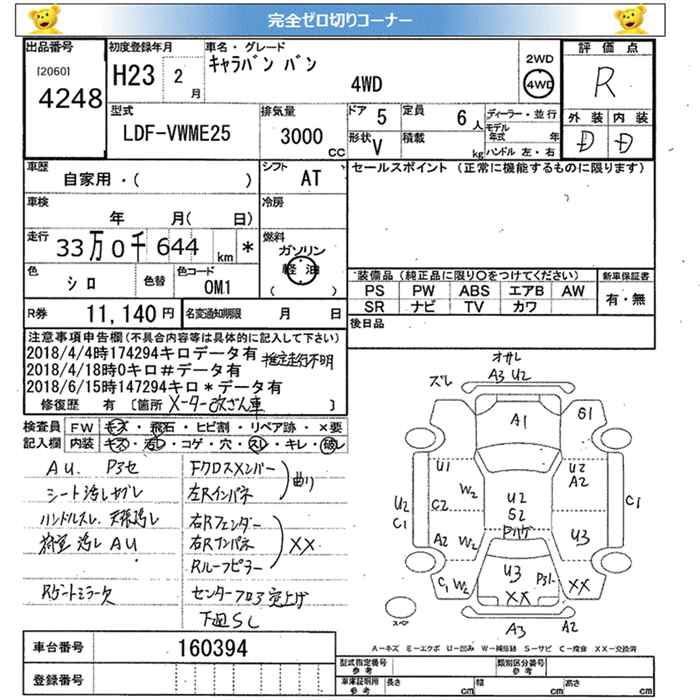 完全ゼロ切りコーナー
出品番号
[2060]
4248
初度登録年月
H23 2月
車名・グレード
キャラバン バン
4WD
2WD
4WD
評価点
R
外装 内装
D D
型式
LDF-VWME25
排気量
3000 CC
ドア 5
定員 6人
形状 V
積載 kg
ディーラー・並行
モデル年式 年
ハンドル 左・右
車歴
自家用・( )
シフト
AT
セールスポイント (正常に機能するものに限ります)
車検
年 月( 日)
冷房
走行
33万0千644 km *
燃料
ガソリン
軽油
( )
色
シロ
色替
色コード
OM1
装備品 (純正品に限り○をつけてください)
新車保証書
PS PW ABS エアB AW
SR ナビ TV カワ
有・無
R券 11,140円
名変通知期限 月 日
後日品
注意事項申告欄 (不具合内容等は具体的に記入して下さい)
2018/4/4時174294キロデータ有
推定走行不明
2018/4/18時0キロ#データ有
2018/6/15時147294キロ*データ有
修復歴 有 [箇所 メーター改ざん車 ]
検査員記入欄
FW キズ・飛石・ヒビ割・リペア跡・×要
内装 キズ・汚レ・コゲ・穴・スレ・キレ・破レ
AU. P3セ
シート汚レ
ハンドルスレ、天張汚レ
汚レ AU
Rゲートミラー欠
Fクロスメンバー
左Rインパネ
曲り
右Rフェンダー
右Rインパネ
Rルーフピラー
XX
センターフロア突上げ
下回SL
オサレ
ズレ
A3 U2
A1
S1
U1
W2
U2
A2
U2
C1
C2
U2
S2
C1
A2
W2
U3
C1 W2
U3
XX
XX
スペア
A3
A2
A-キズ E-エクボ U-凹み W-補修跡 S-サビ C-腐食 XX-交換済
車台番号
160394
登録番号
型式指定番号
参考
類別区分番号
参考
車庫証明用
参考
長さ cm
幅 cm
高さ cm